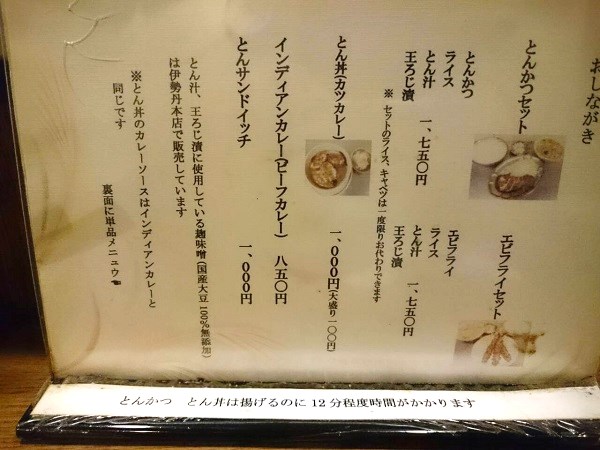 おしながき
とんかつセット
とんかつ
ライス
とん汁
王ろじ漬　一、七五〇円
エビフライセット
エビフライ
ライス
とん汁
王ろじ漬　一、七五〇円
※ セットのライス、キャベツは一度限りお代わりできます
とん丼(カツカレー)　一、〇〇〇円(大盛り一〇〇円)
インディアンカレー(ビーフカレー)　八五〇円
とんサンドイッチ　一、〇〇〇円
とん汁、王ろじ漬に使用している麹味噌(国産大豆100%無添加)
は伊勢丹本店で販売しています
※とん丼のカレーソースはインディアンカレーと
同じです
裏面に単品メニュウ☚
とんかつ　とん丼は揚げるのに 12 分程度時間がかかります